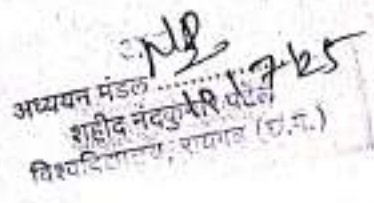 अध्ययन मंडल ..............
शहीद नंदकुमार पटेल
विश्वविद्यालय, रायगढ़ (छ.ग.)